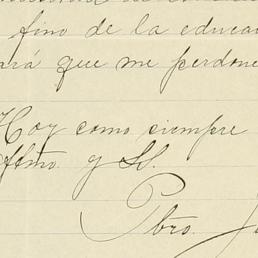 fino de la educa
ará que me perdone
Hoy como siempre
Afmo y SS.
Pbro. J